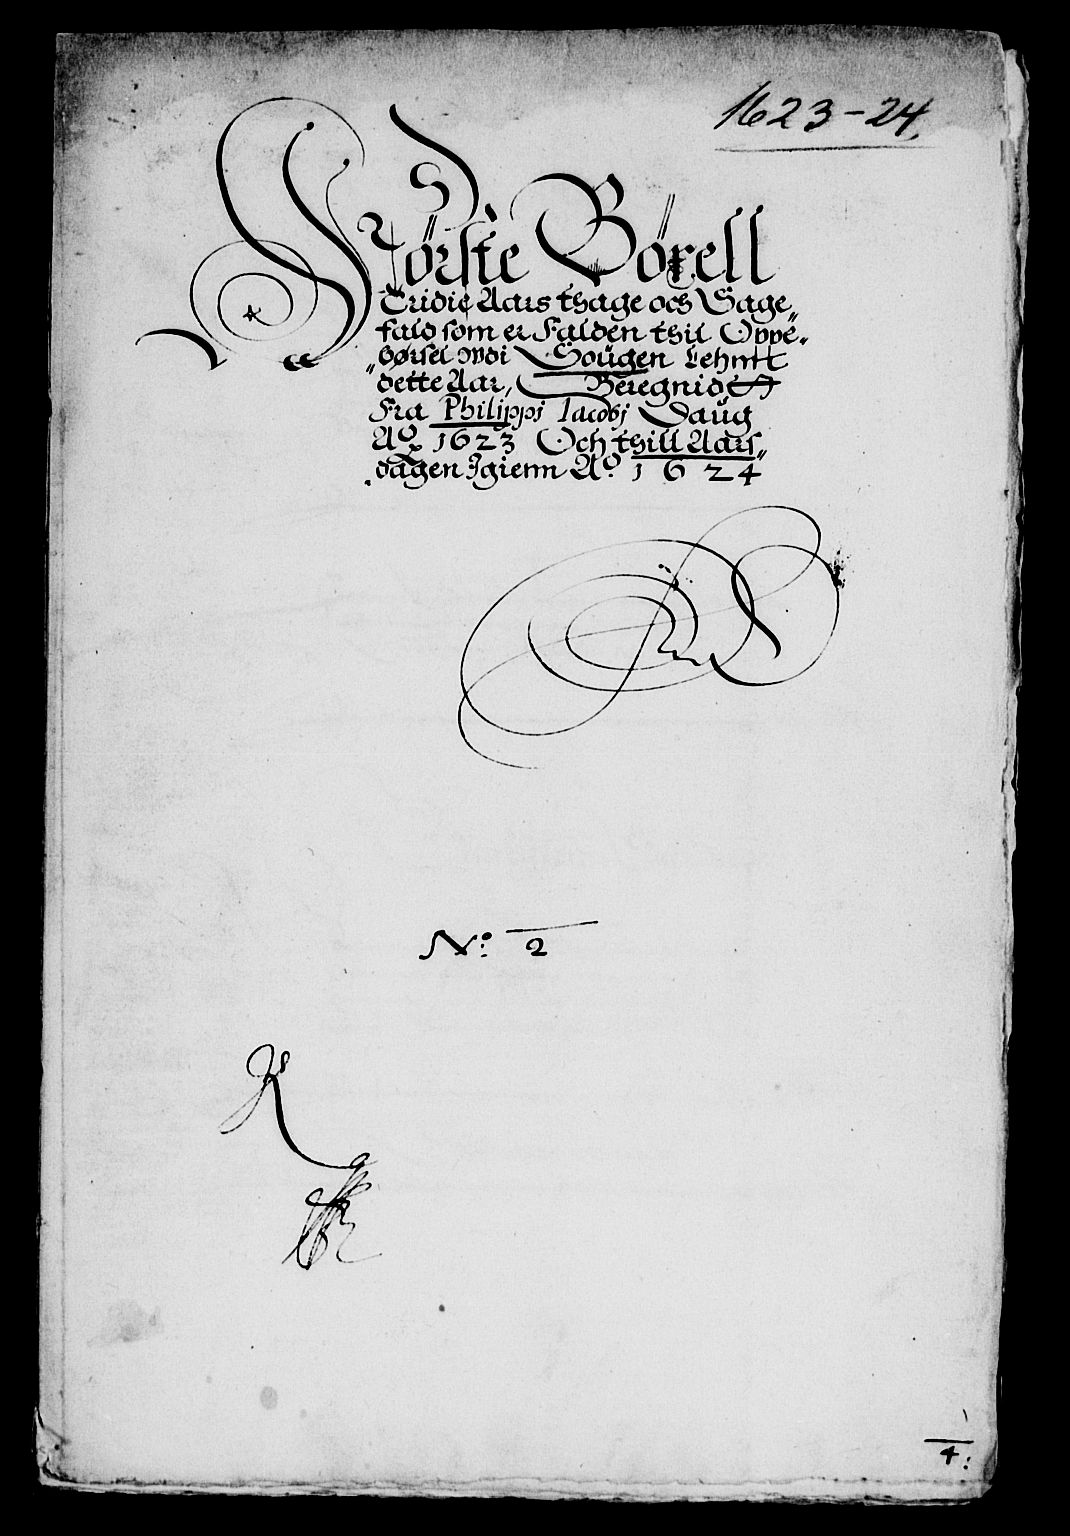 1623-24,
Første Böxell
Tridie Aars thage och Sage„
fald som er Falden thil Oppe„
„børsel Wdi Sougen Lehntt
dette Aar, Beregnid
Fra Philippi Jacobj Daüg
A° 1623 Och thill Aars„
dagen Igienn A° 1624
N°: 2
4: